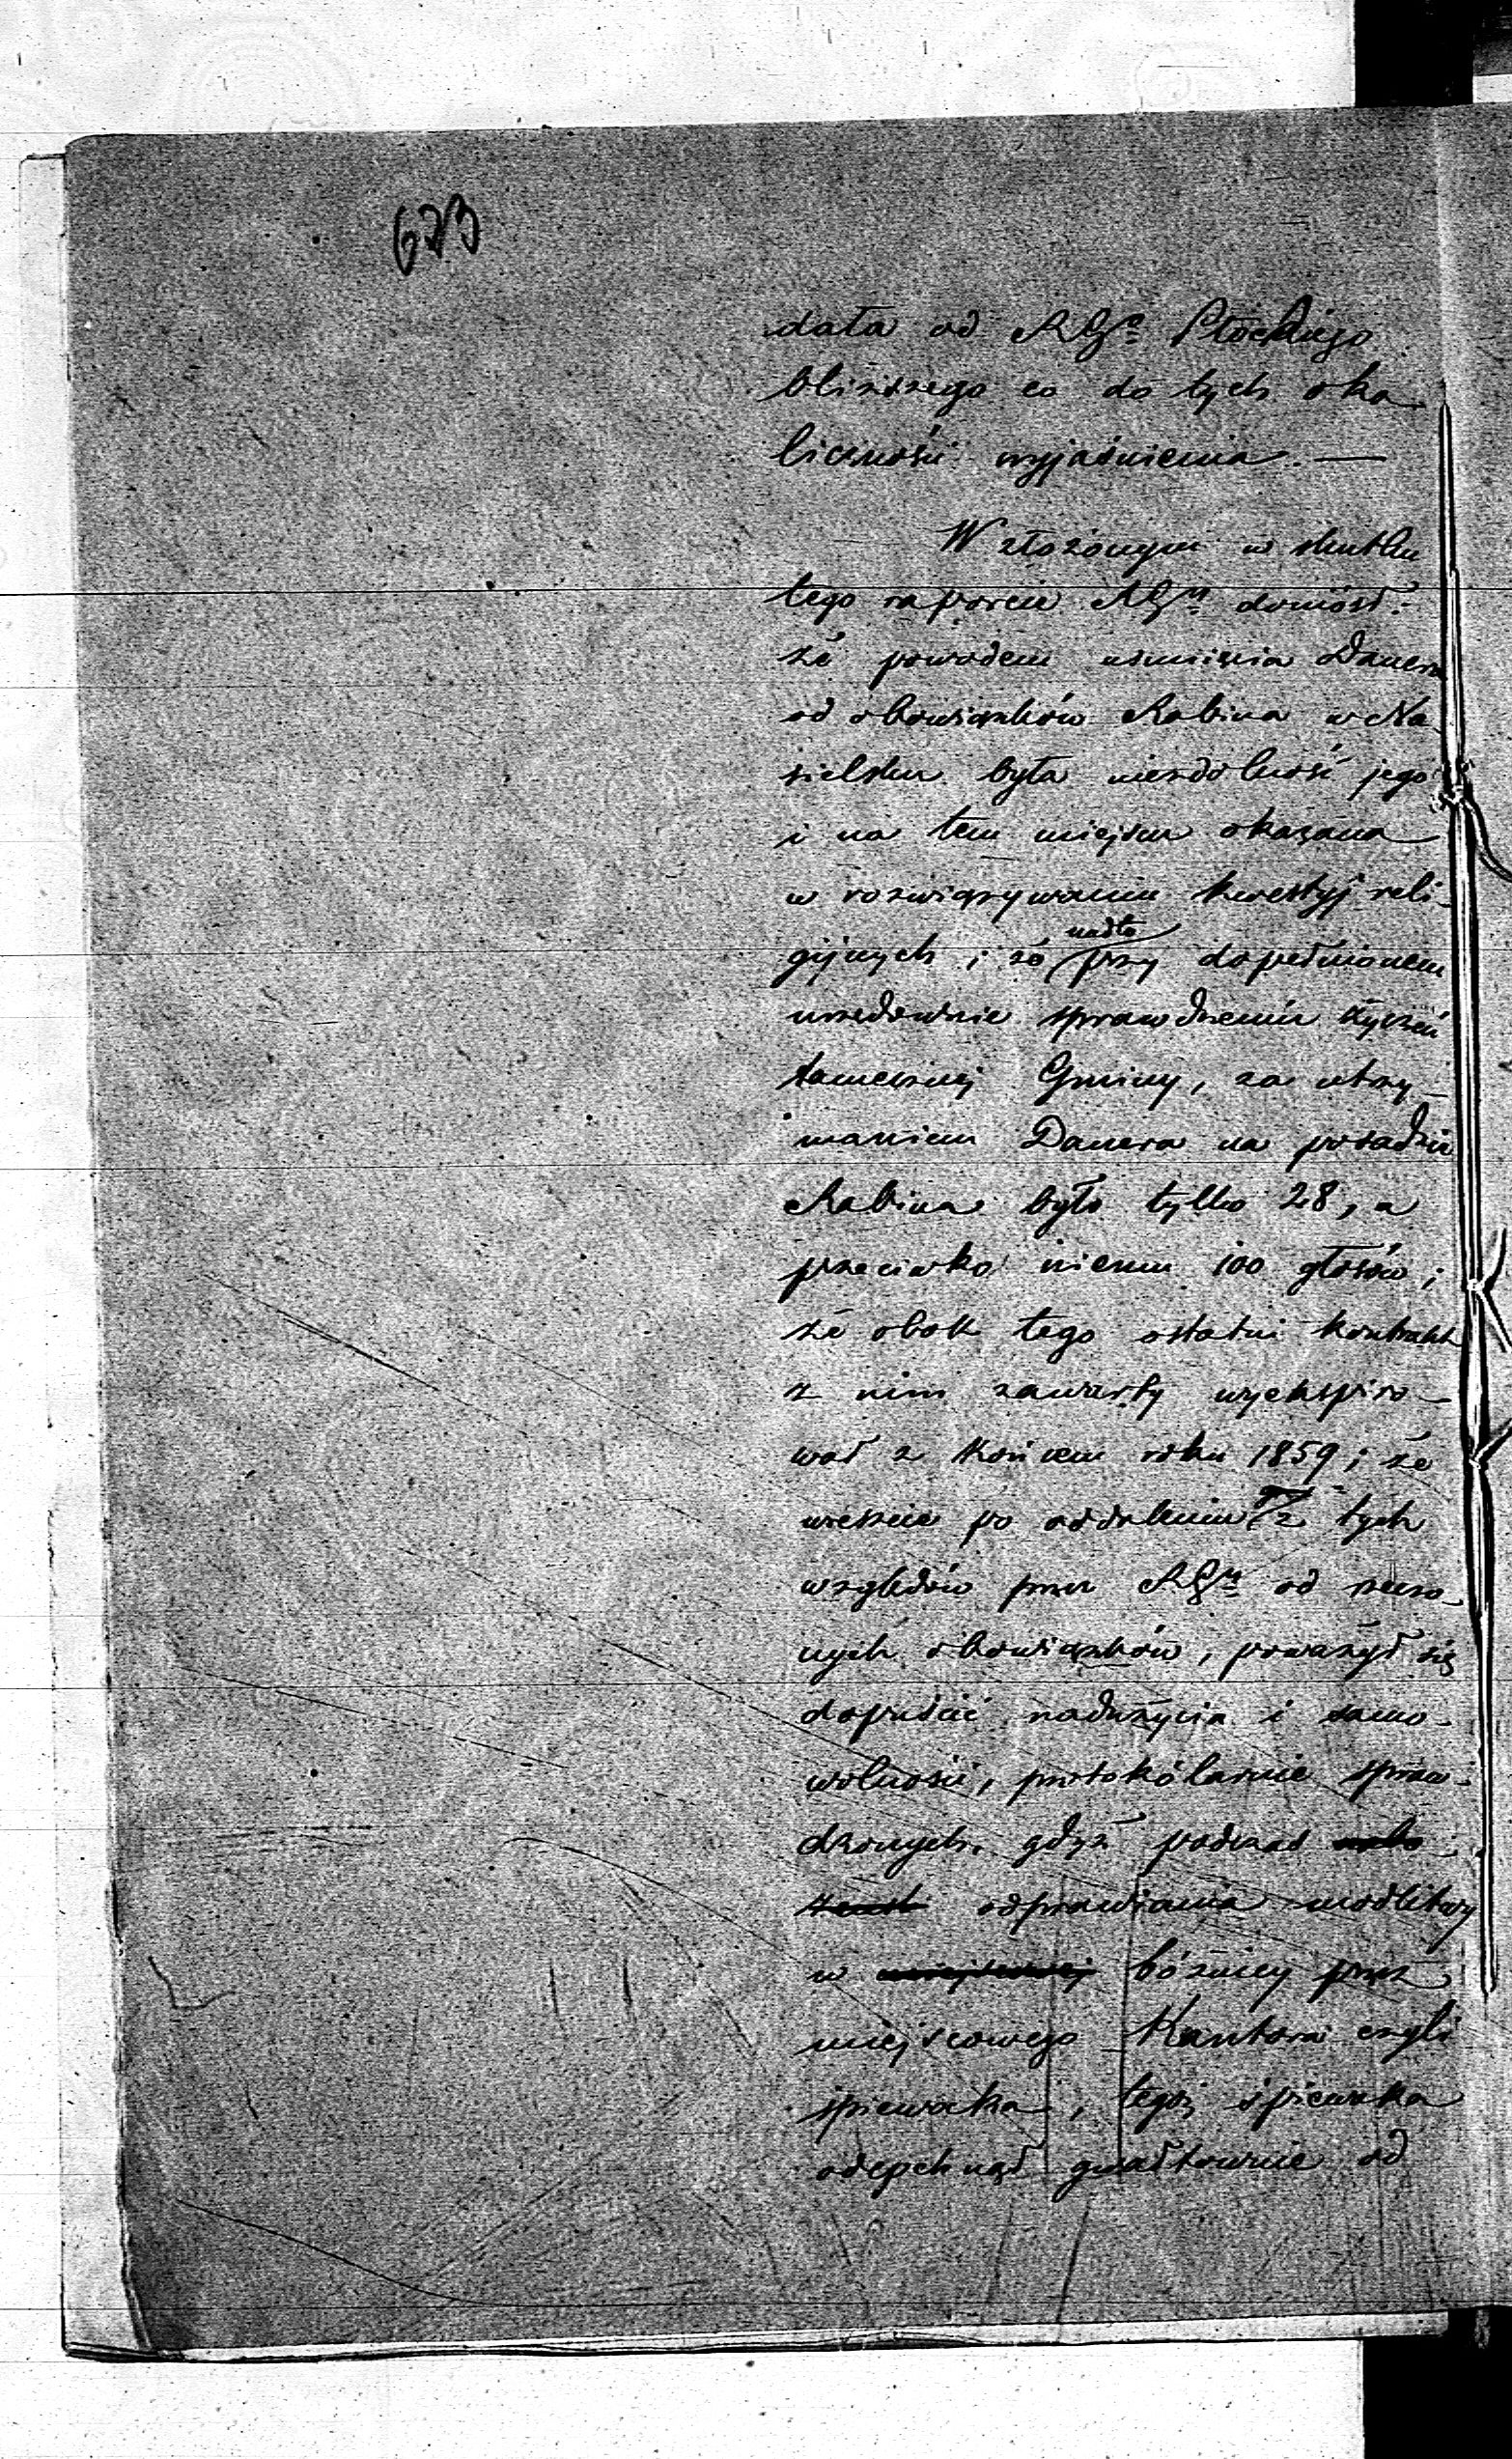 623
data od RGo Płockiego
bliższego co do tych oko
liczności wyjaśnienia. —
W złożonym w skutku
tego raporcie RGu doniósł:
że powodem usunięcia Danera
od obowiązków Rabina w Na
sielsku była niezdolność jego
i na tem miejscu okazana
w rozwiązywaniu kwestyj reli-
nadto
gijnych; że przy dopełnionem
urzędownie sprawdzeniu życzeń
tamecznej Gminy, za utrzy-
maniem Danera na posadzie
Rabina było tylko 28, a
przeciwko niemu 100 głosów;
że obok tego ostatni kontrakt
z nim zawarty wyekspiro-
wał z końcem roku 1859; że
wreszcie po oddaleniu z tych
względów przez RGu od rzeczo-
nych obowiązków, poważył się
dopuścić nadużycia i samo-
wolności, protokólarnie spraw-
dzonych, gdyż podczas nabo-
żeństw odprawiania modlitwy
w miejscowej bóżnicy przez
miejscowego Kantora czyli
śpiewaka, tegoż śpiewaka
odepchnął gwałtownie od